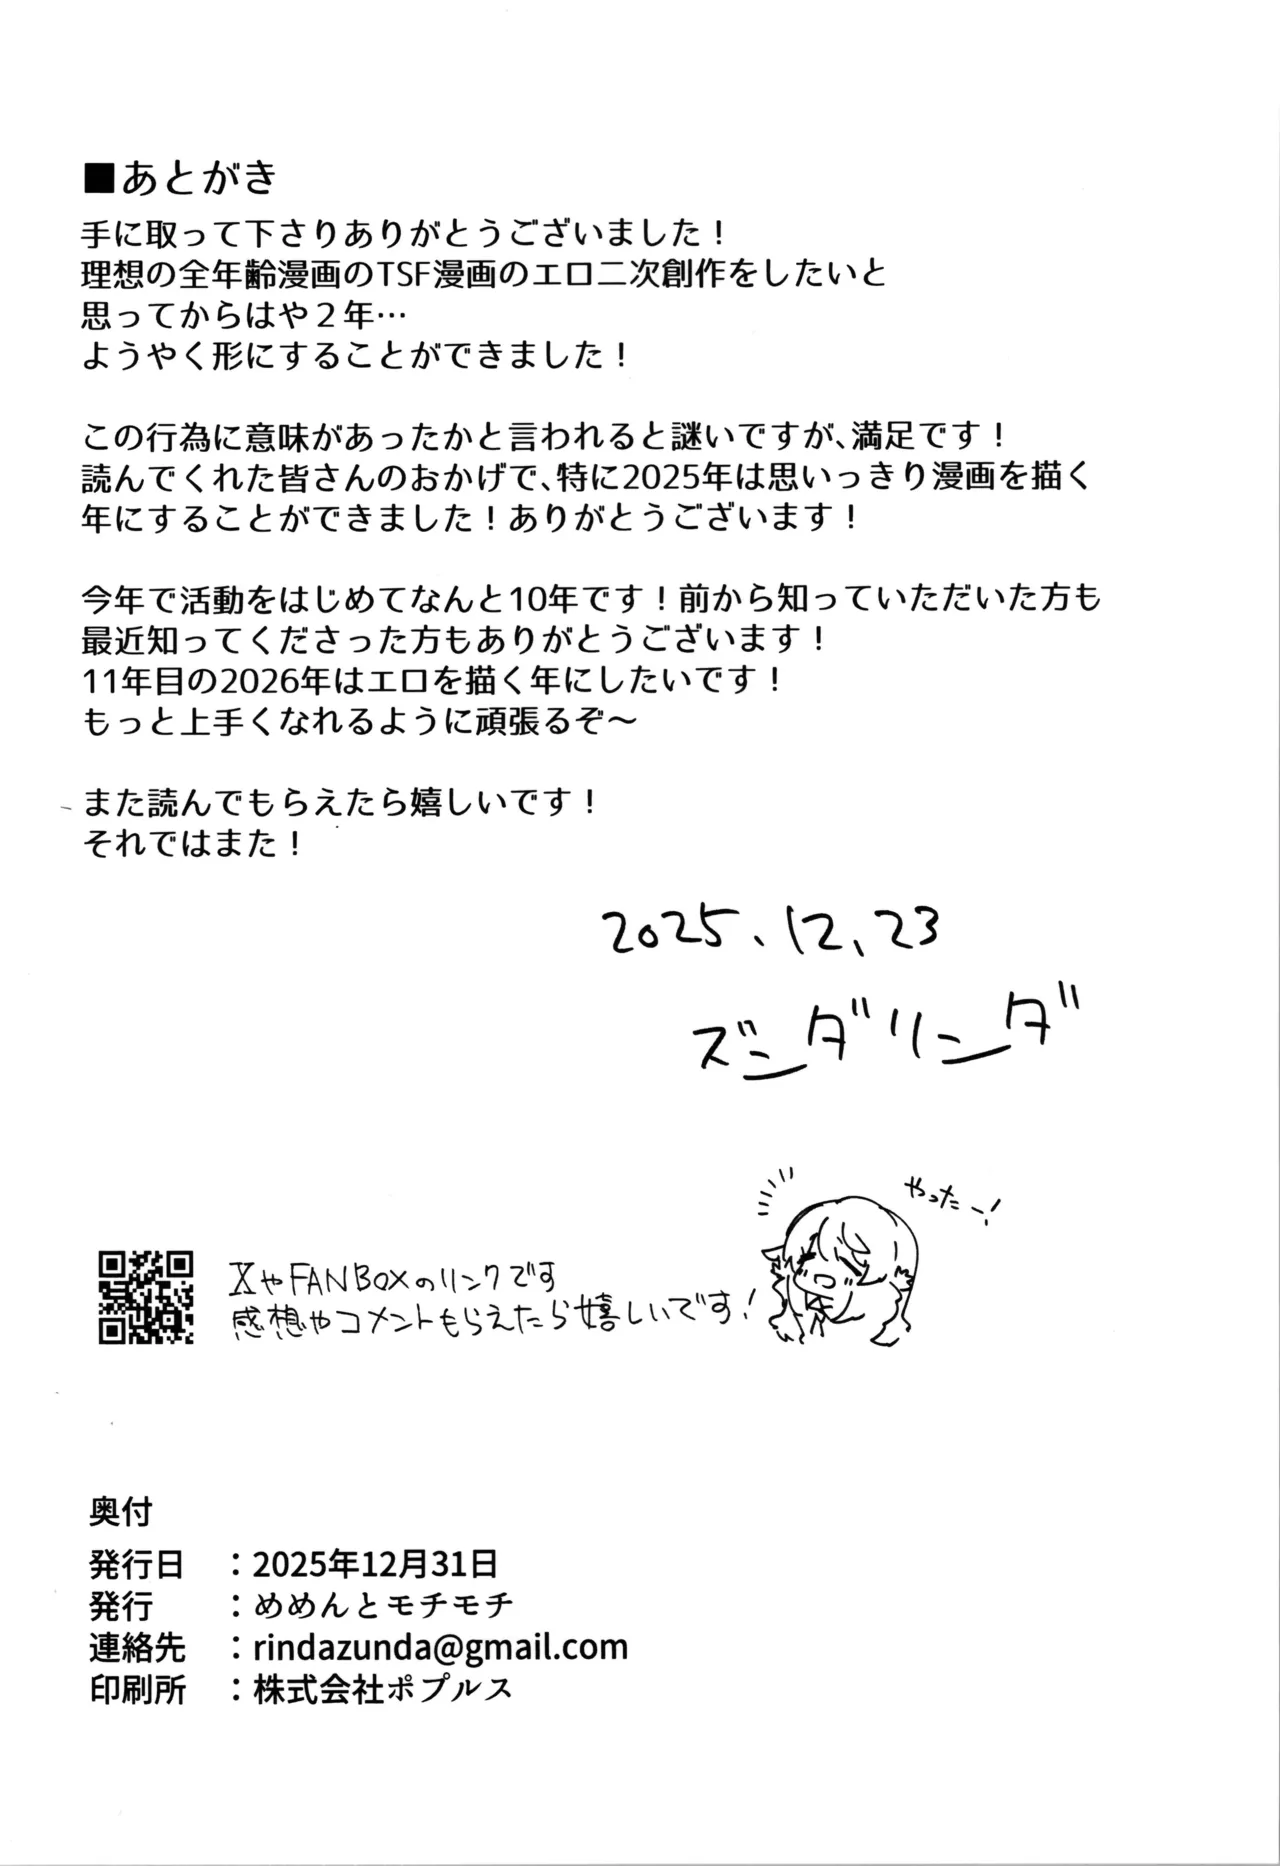 ■あとがき
手に取って下さりありがとうございました！
理想の全年齢漫画のTSF漫画のエロ二次創作をしたいと
思ってからはや２年…
ようやく形にすることができました！
この行為に意味があったかと言われると謎いですが、満足です！
読んでくれた皆さんのおかげで、特に2025年は思いっきり漫画を描く
年にすることができました！ありがとうございます！
今年で活動をはじめてなんと10年です！前から知っていただいた方も
最近知ってくださった方もありがとうございます！
11年目の2026年はエロを描く年にしたいです！
もっと上手くなれるように頑張るぞ〜
また読んでもらえたら嬉しいです！
それではまた！
2025、12、23
ズンダリンダ
やったー！
XやFANBOXのリンクです
感想やコメントもらえたら嬉しいです！
奥付
発行日　：2025年12月31日
発行　　：めめんとモチモチ
連絡先　：rindazunda@gmail.com
印刷所　：株式会社ポプルス